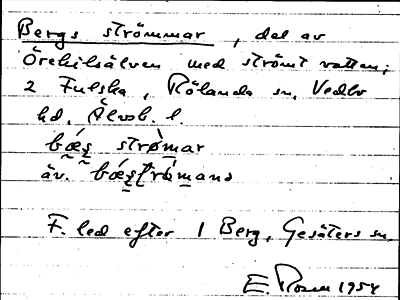 Bergs strömmar, del av
Örekilsälven med strömt vatten;
2 Fulska, Rölanda sn, Vedbo
hd, Älvsb. l.
bæs strømar
äv.
F. led efter 1 Berg, Gesäters sn.
E. Rosen 1954